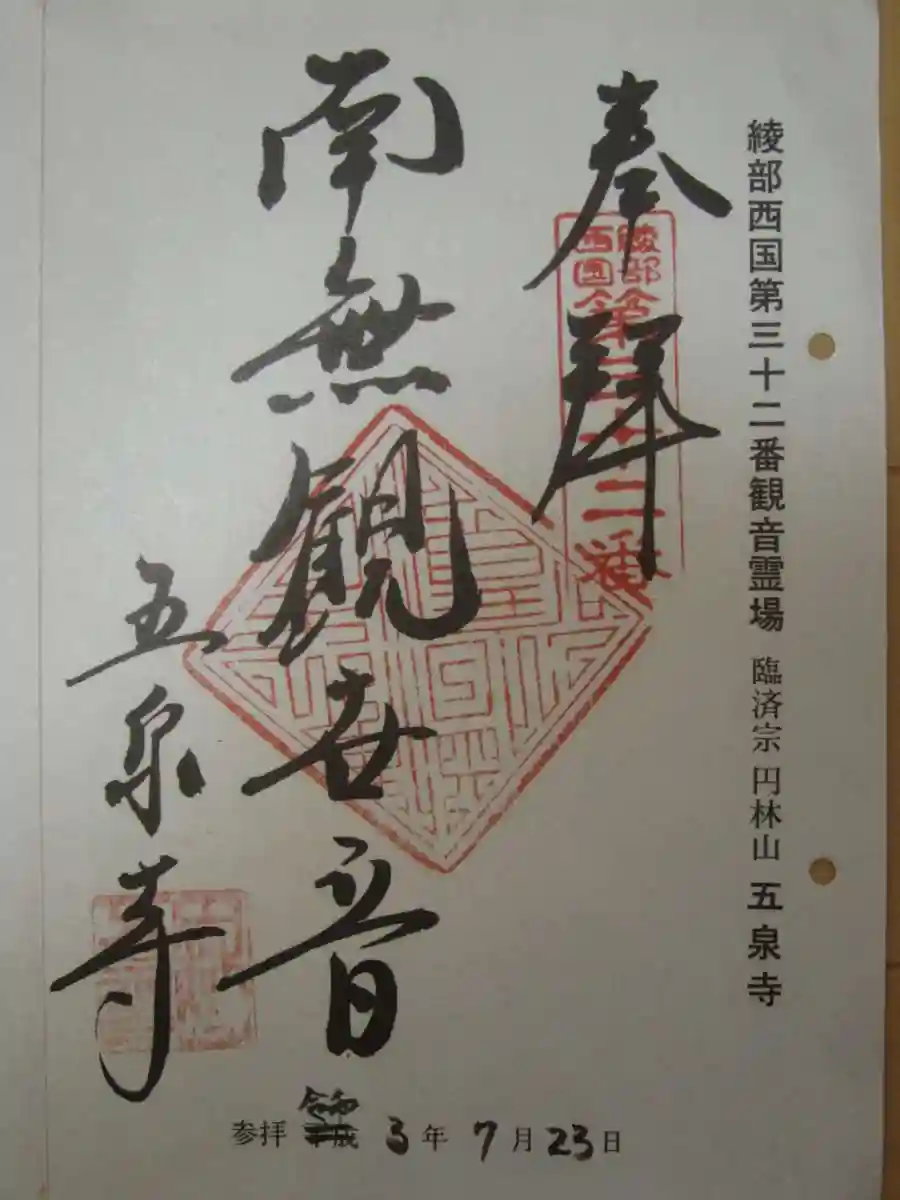 綾部西国第三十二番観音霊場 臨済宗 円林山 五泉寺
奉拝
綾部
西國
第三十二番
南無観世音
五泉寺
参拝 令和 3年 7月 23日